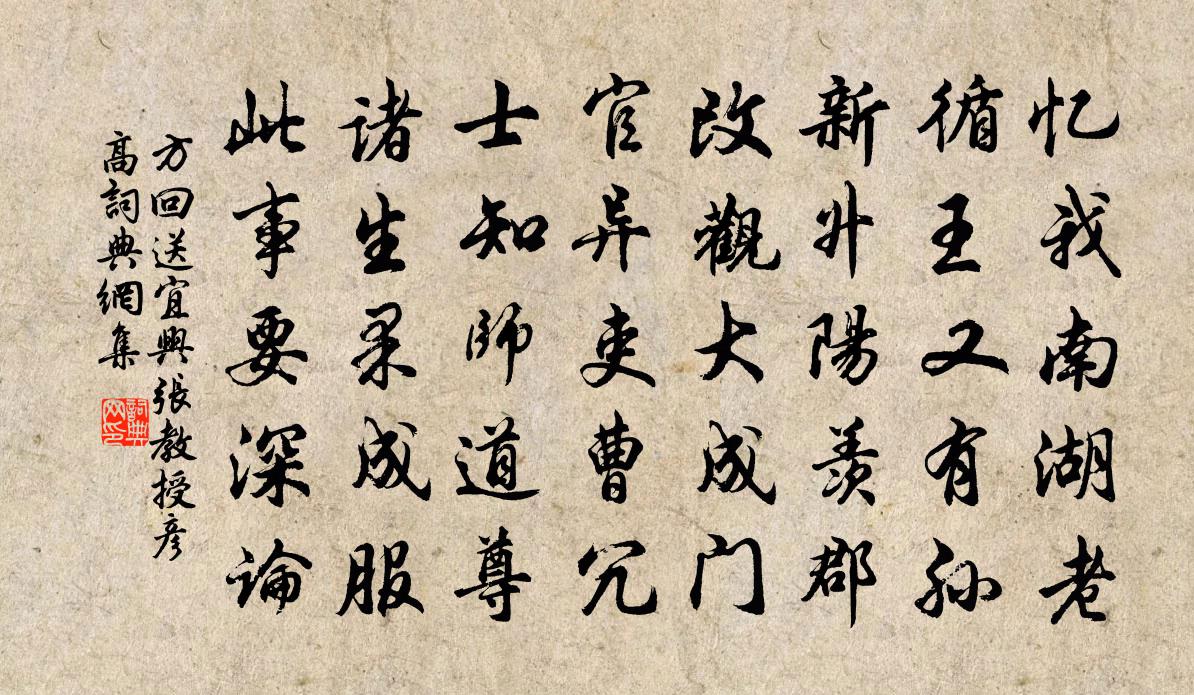 忆我南湖老
循王又有孙
新升阳羡郡
改觀大成门
官异吏曹冗
士知師道尊
诸生果成服
此事要深論
方回送宜興張教授彦
高詞典網集
詞典
网印